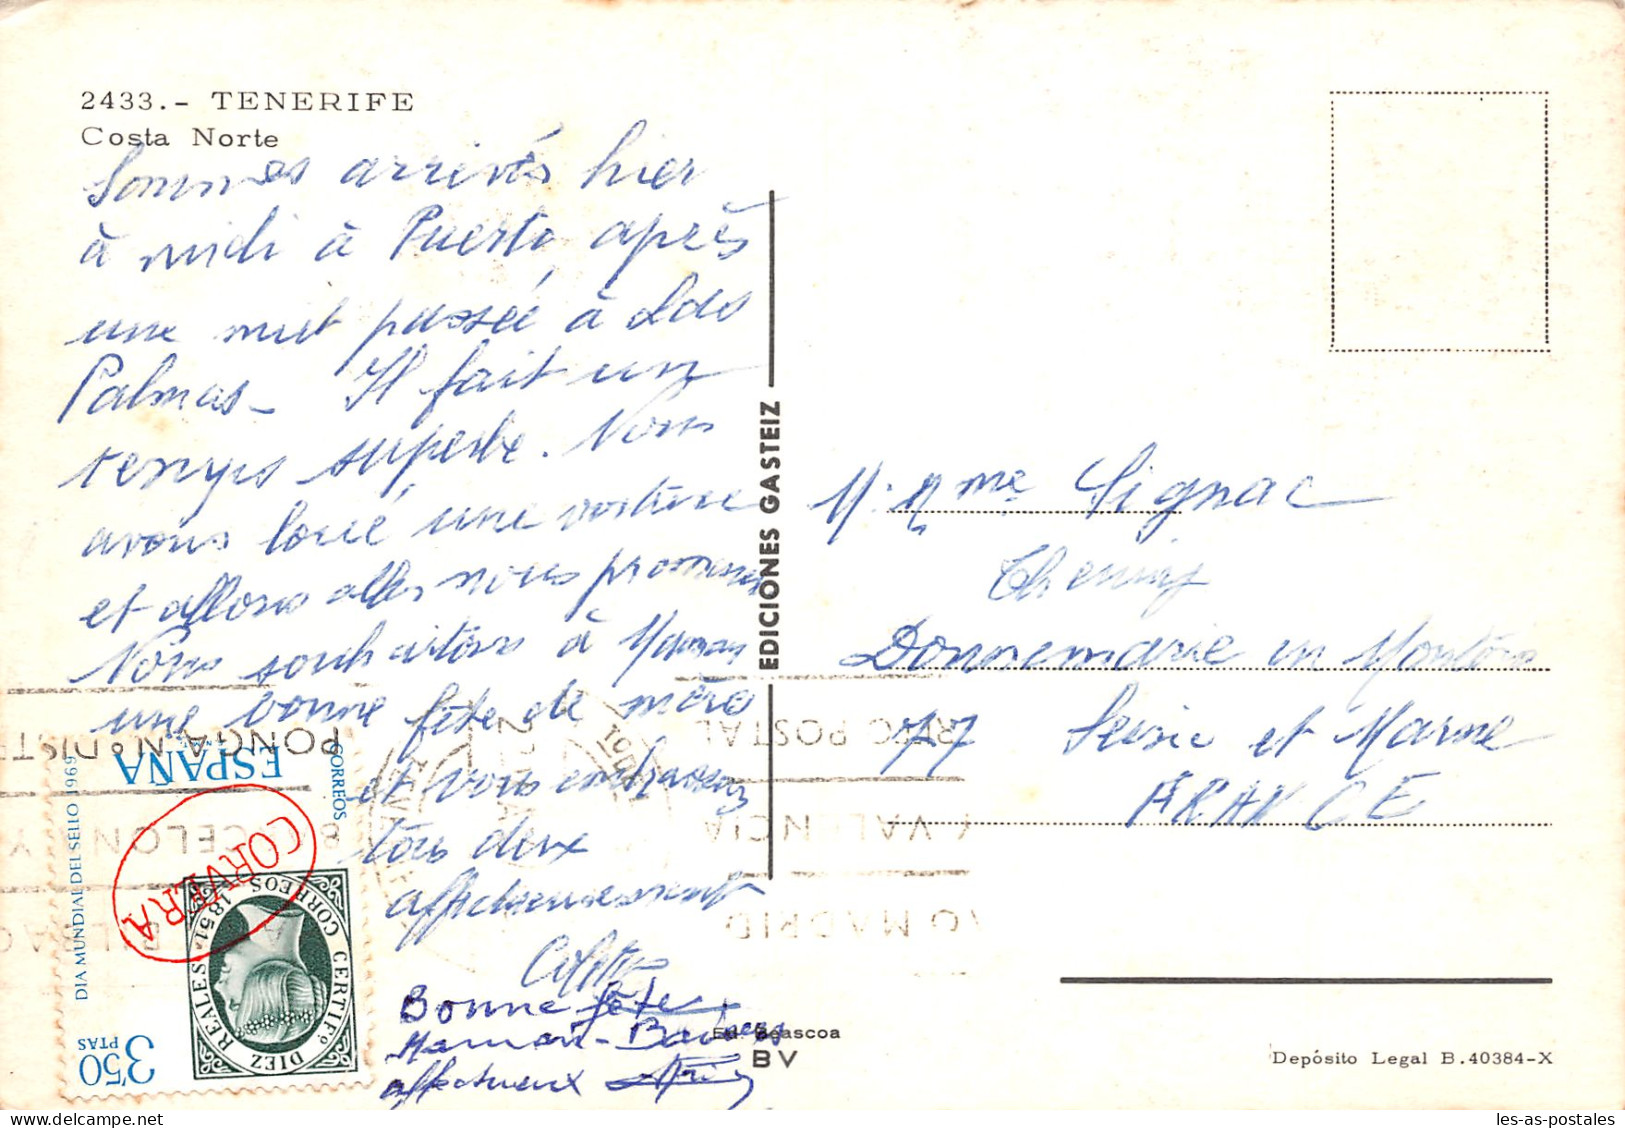 2433.- TENERIFE
Costa Norte
Sommes arrivés hier
à midi à Puerto, après
une nuit passée à Las
Palmas - Il fait un
temps superbe. Nous
avons loué une voiture
et allons aller nous promener
Nous souhaitons à Maman
une bonne fête de mère
et vous embrassons
tous deux
affectueusement
Bonne fête
Maman - Baisers
affectueux
EDICIONES GASTEIZ
M. Mme Signac
Donnemarie en Montois
77 Seine et Marne
FRANCE
Ed. Beascoa
BV
Depósito Legal B.40384-X
PONGA Nº DIST
REC POSTAL
VALENCIA
MADRID
ESPAÑA
CORREOS
DIA MUNDIAL DEL SELLO 1969
3'50
PTAS
CORREOS 1851
CERTIFº DIEZ REALES
CORVERA
les-as-postales